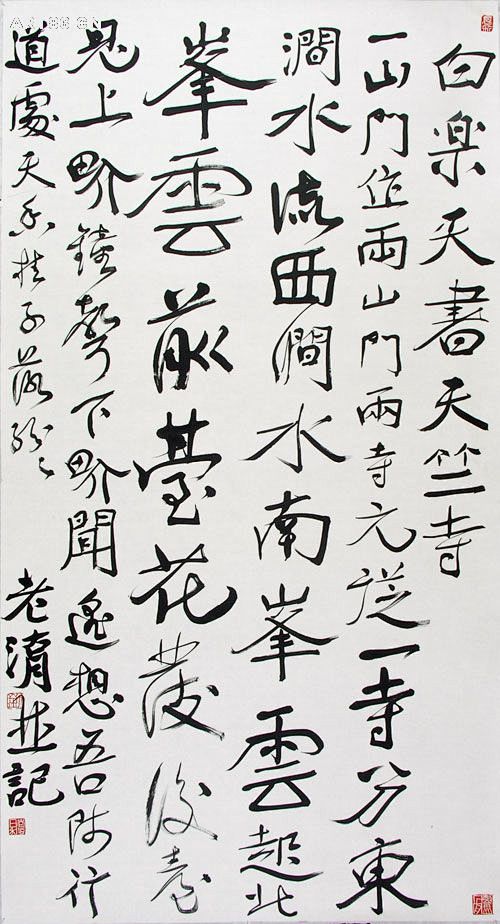 白楽天書天竺寺
一山門作兩山門兩寺元從一寺分東
澗水流西澗水南峯雲起北
峯雲前臺花發後臺
見上界鐘聲下界聞遙想吾師行
道處天香桂子落紛々
老並記